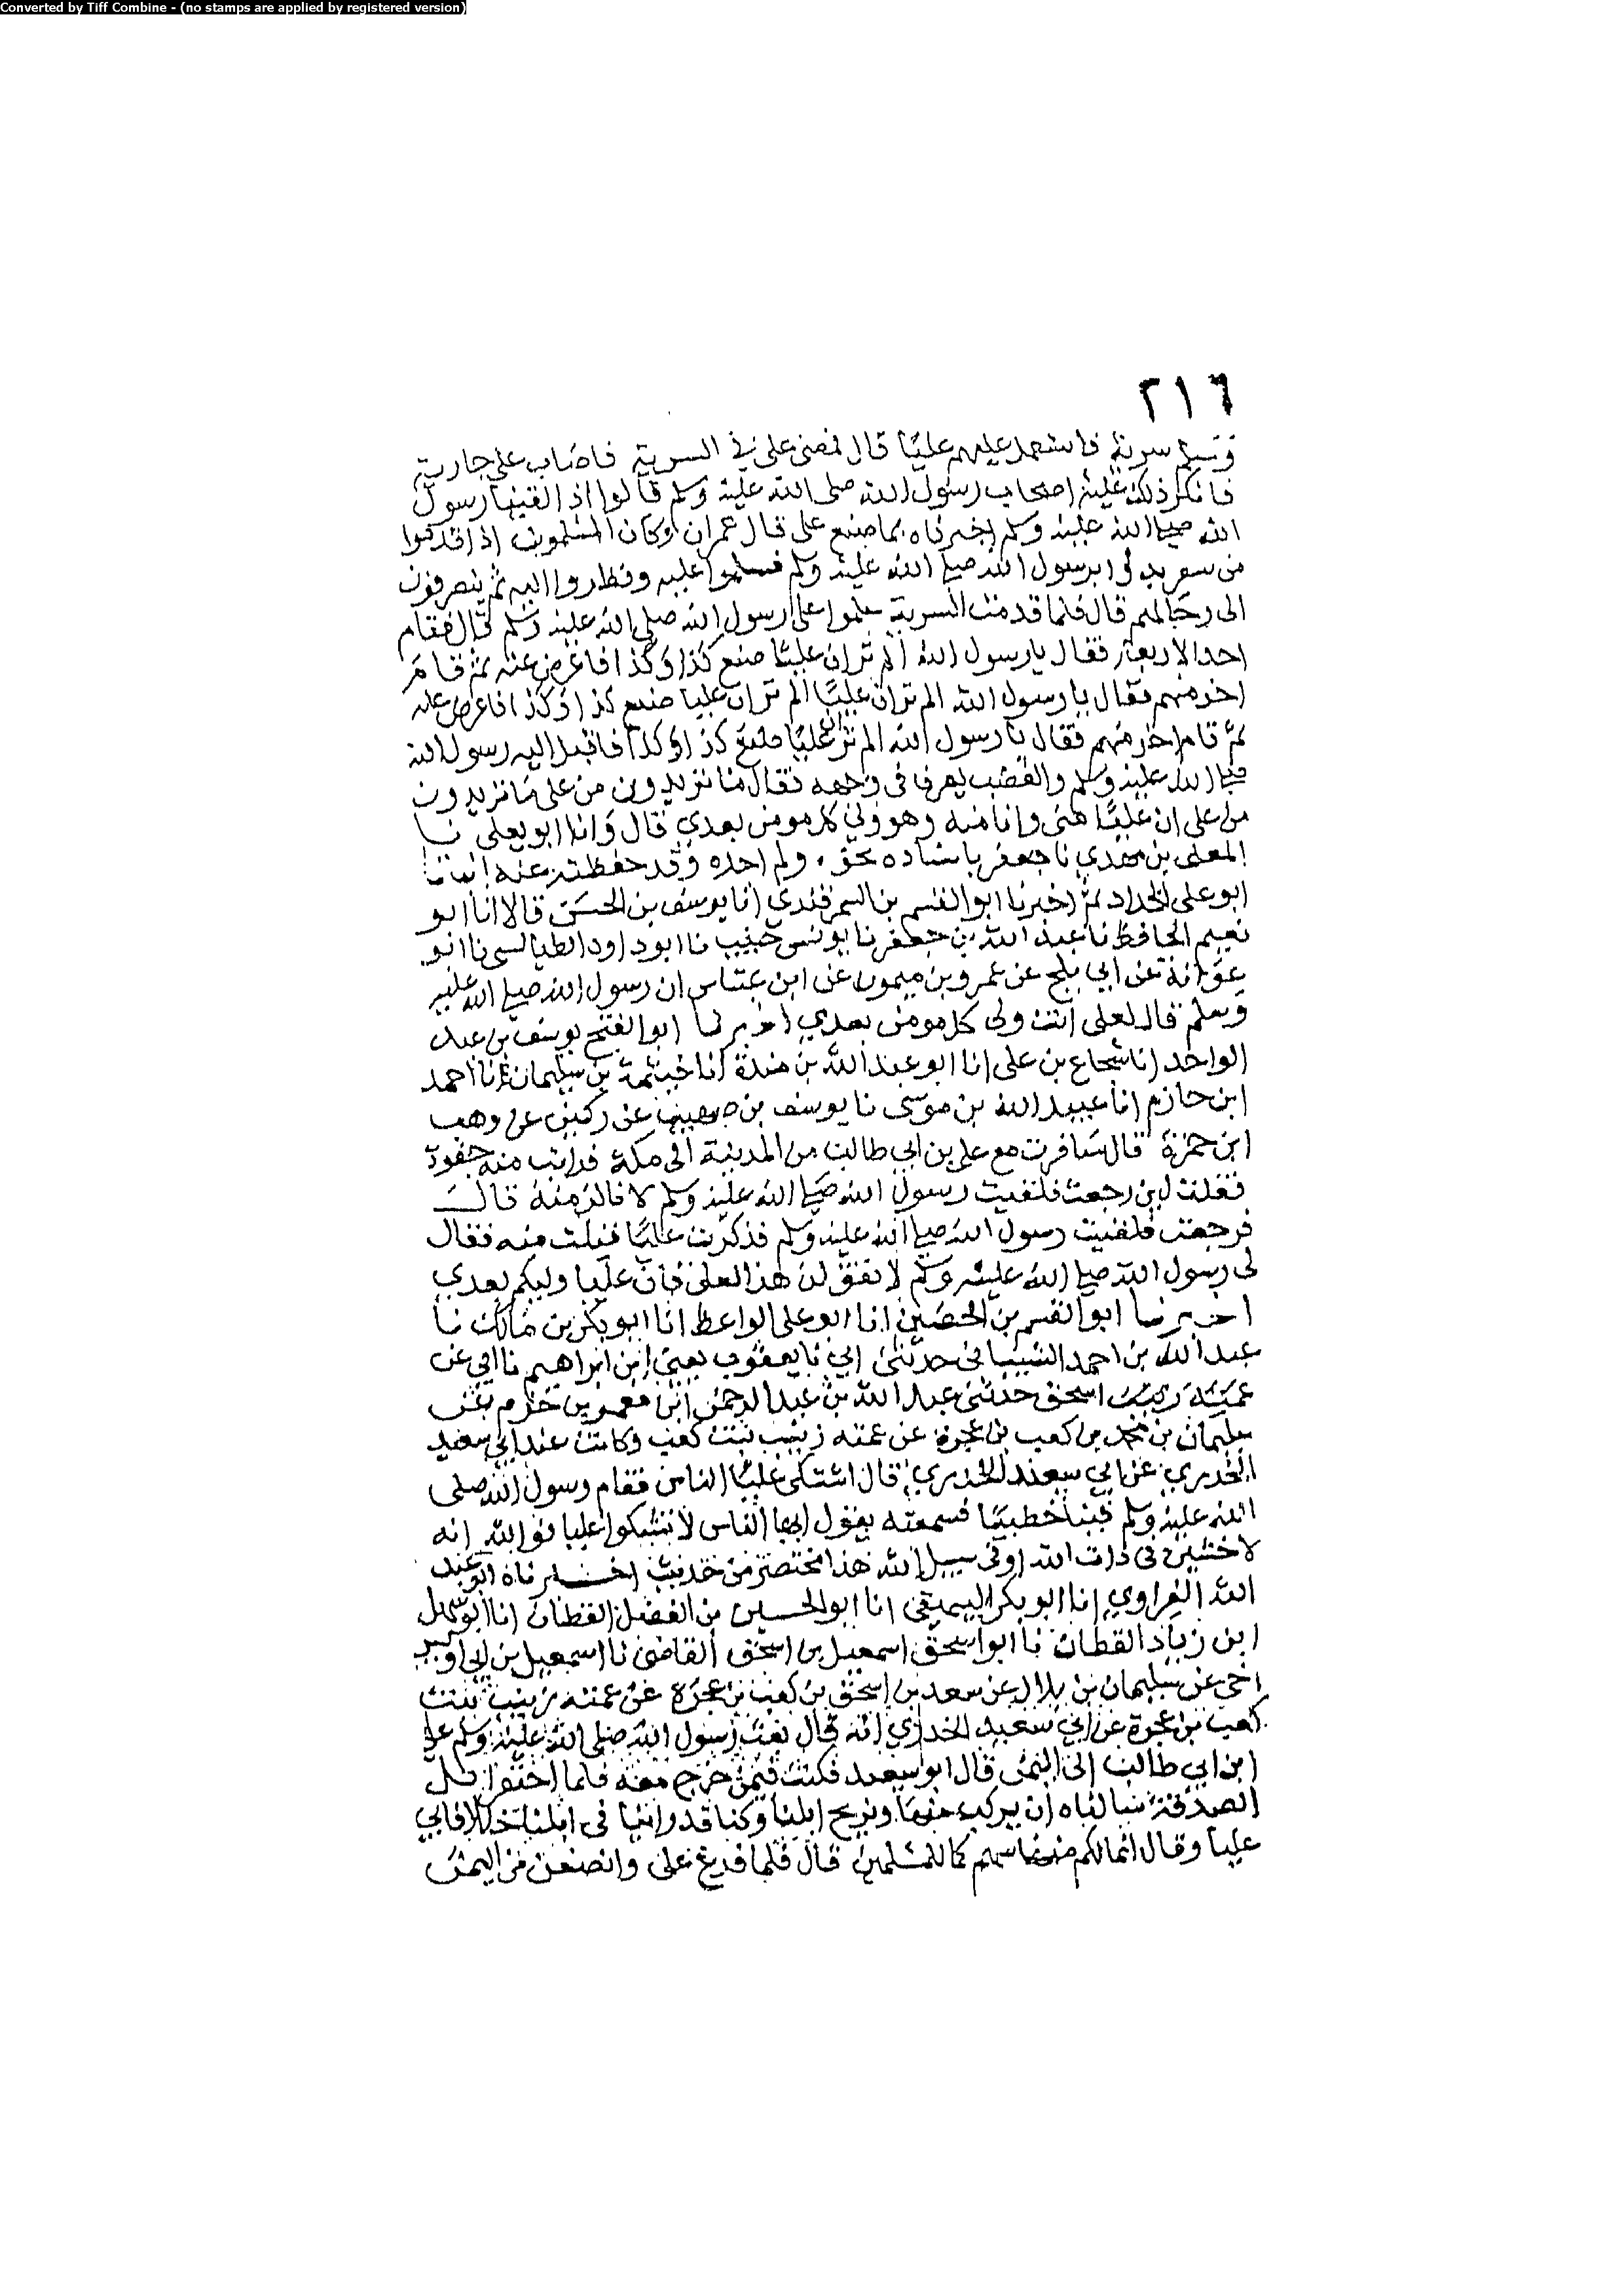 Converted by Tiff Combine - (no stamps are applied by registered version)
٢١٦
وسلم سرية فاستعمل عليهم عليا قال فمضى على في السرية فاصاب على جارية
فانكر ذلك عليه اصحاب رسول الله صلى الله عليه وسلم قالوا اذا لقينا رسول
الله صلى الله عليه وسلم اخبرناه بما صنع على قال عمران وكان المسلمون اذا قدموا
من سفر بدوا برسول الله صلى الله عليه وسلم فسلموا عليه ونظروا اليه ثم ينصرفون
الى رحالهم قال فلما قدمت السرية سلموا على رسول الله صلى الله عليه وسلم قال فقام
احد الاربعة فقال يا رسول الله الم تر ان عليا صنع كذا وكذا فاعرض عنه ثم قام
اخر منهم فقال يا رسول الله الم تر ان عليا الم تر ان عليا صنع كذا وكذا فاعرض عنه
ثم قام اخر منهم فقال يا رسول الله الم تر ان عليا صنع كذا وكذا فاقبل اليه رسول الله
صلى الله عليه وسلم والغضب يعرف فى وجهه فقال ما تريدون من على ما تريدون
من على ان عليا منى وانا منه وهو ولي كل مومن بعدي قال وانا ابو يعلى نا
المعلى بن مهدي نا جعفر باسناده نحوه ولم احده وقد حفظته عنه انبانا
ابو على الحداد ثم اخبرنا ابو القسم بن السمرقندي انا يوسف بن الحسن قالا انا ابو
نعيم الحافظ نا عبد الله بن جعفر نا يونس حبيب نا ابو داود الطيالسى نا ابو
عوانة عن ابي بلج عن عمرو بن ميمون عن ابن عباس ان رسول الله صلى الله عليه
وسلم قال لعلى انت ولى كل مومن بعدي اخبرنا ابو الفتح يوسف بن عبد
الواحد انا شجاع بن على انا ابو عبد الله بن مندة انا خيثمة بن سليمان انا احمد
ابن حازم انا عبيد الله بن موسى نا يوسف بن صهيب عن ركين عن وهب
ابن حمزة قال سافرت مع علي بن ابي طالب من المدينة الى مكة فرايت منه جفوة
فقلت لين رجعت فلقيت رسول الله صلى الله عليه وسلم لا نالن منه قال
فرجعت فلقيت رسول الله صلى الله عليه وسلم فذكرت عليا فنلت منه فقال
لى رسول الله صلى الله عليه وسلم لا تقولن هذا لعلى فان عليا وليكم بعدي
اخبرنا ابو القسم بن الحصين انا ابو على الواعظ انا ابو بكر بن مالك نا
عبد الله بن احمد الشيبانى حدثنى ابي نا يعقوب يعنى ابن ابراهيم نا ابي عن
اسحق حدثنى عبد الله بن عبد الرحمن ابن معمر بن حزم عن
سليمان بن محمد بن كعب بن عجرة عن عمته زينب بنت كعب وكانت عند ابي سعيد
الخدري عن ابي سعيد الخدري قال اشتكى عليا الناس فقام رسول الله صلى
الله عليه وسلم فينا خطيبا فسمعته يقول ايها الناس لا تشكوا عليا فوالله انه
لاخشين فى ذات الله او فى سبيل الله هذا مختصر من حديث اخبرناه ابو عبد
الله الفراوي انا ابو بكر البيهقى انا ابو الحسين بن الفضل القطان انا ابو سهل
ابن زياد القطان نا ابو اسحق اسمعيل بن اسحق القاضى نا اسمعيل بن ابي اويس
اخي عن سليمان بن بلال عن سعد بن اسحق بن كعب بن عجرة عن عمته زينب بنت
كعب بن عجرة عن ابي سعيد الخدري انه قال بعث رسول الله صلى الله عليه وسلم علي
ابن ابي طالب الى اليمن قال ابو سعيد فكنت فيمن خرج معه فلما
الصدقة سالناه ان يركب منها ونريح ابلنا وكنا قد راينا فى ابلنا خللا فابي
علينا وقال انما لكم منها سهم كما للمسلمين قال فلما فرغ على من اليمن